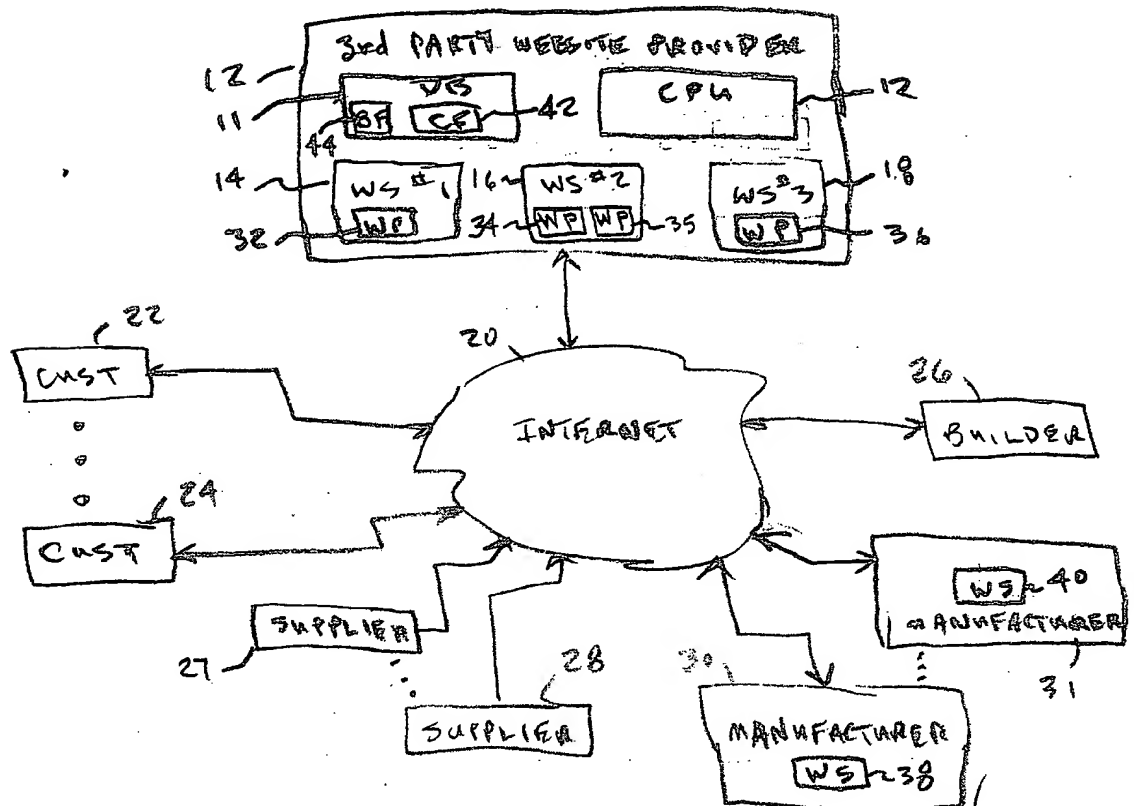 3rd PARTY WEBSITE PROVIDER
12
11
DB
44
BF
CF
42
CPU
12
14
WS #1
WP
32
16
WS #2
34
WP
WP
35
WS #3
WP
18
36
22
CUST
20
INTERNET
26
BUILDER
24
CUST
SUPPLIER
27
SUPPLIER
28
WS
40
MANUFACTURER
31
30
MANUFACTURER
WS
38